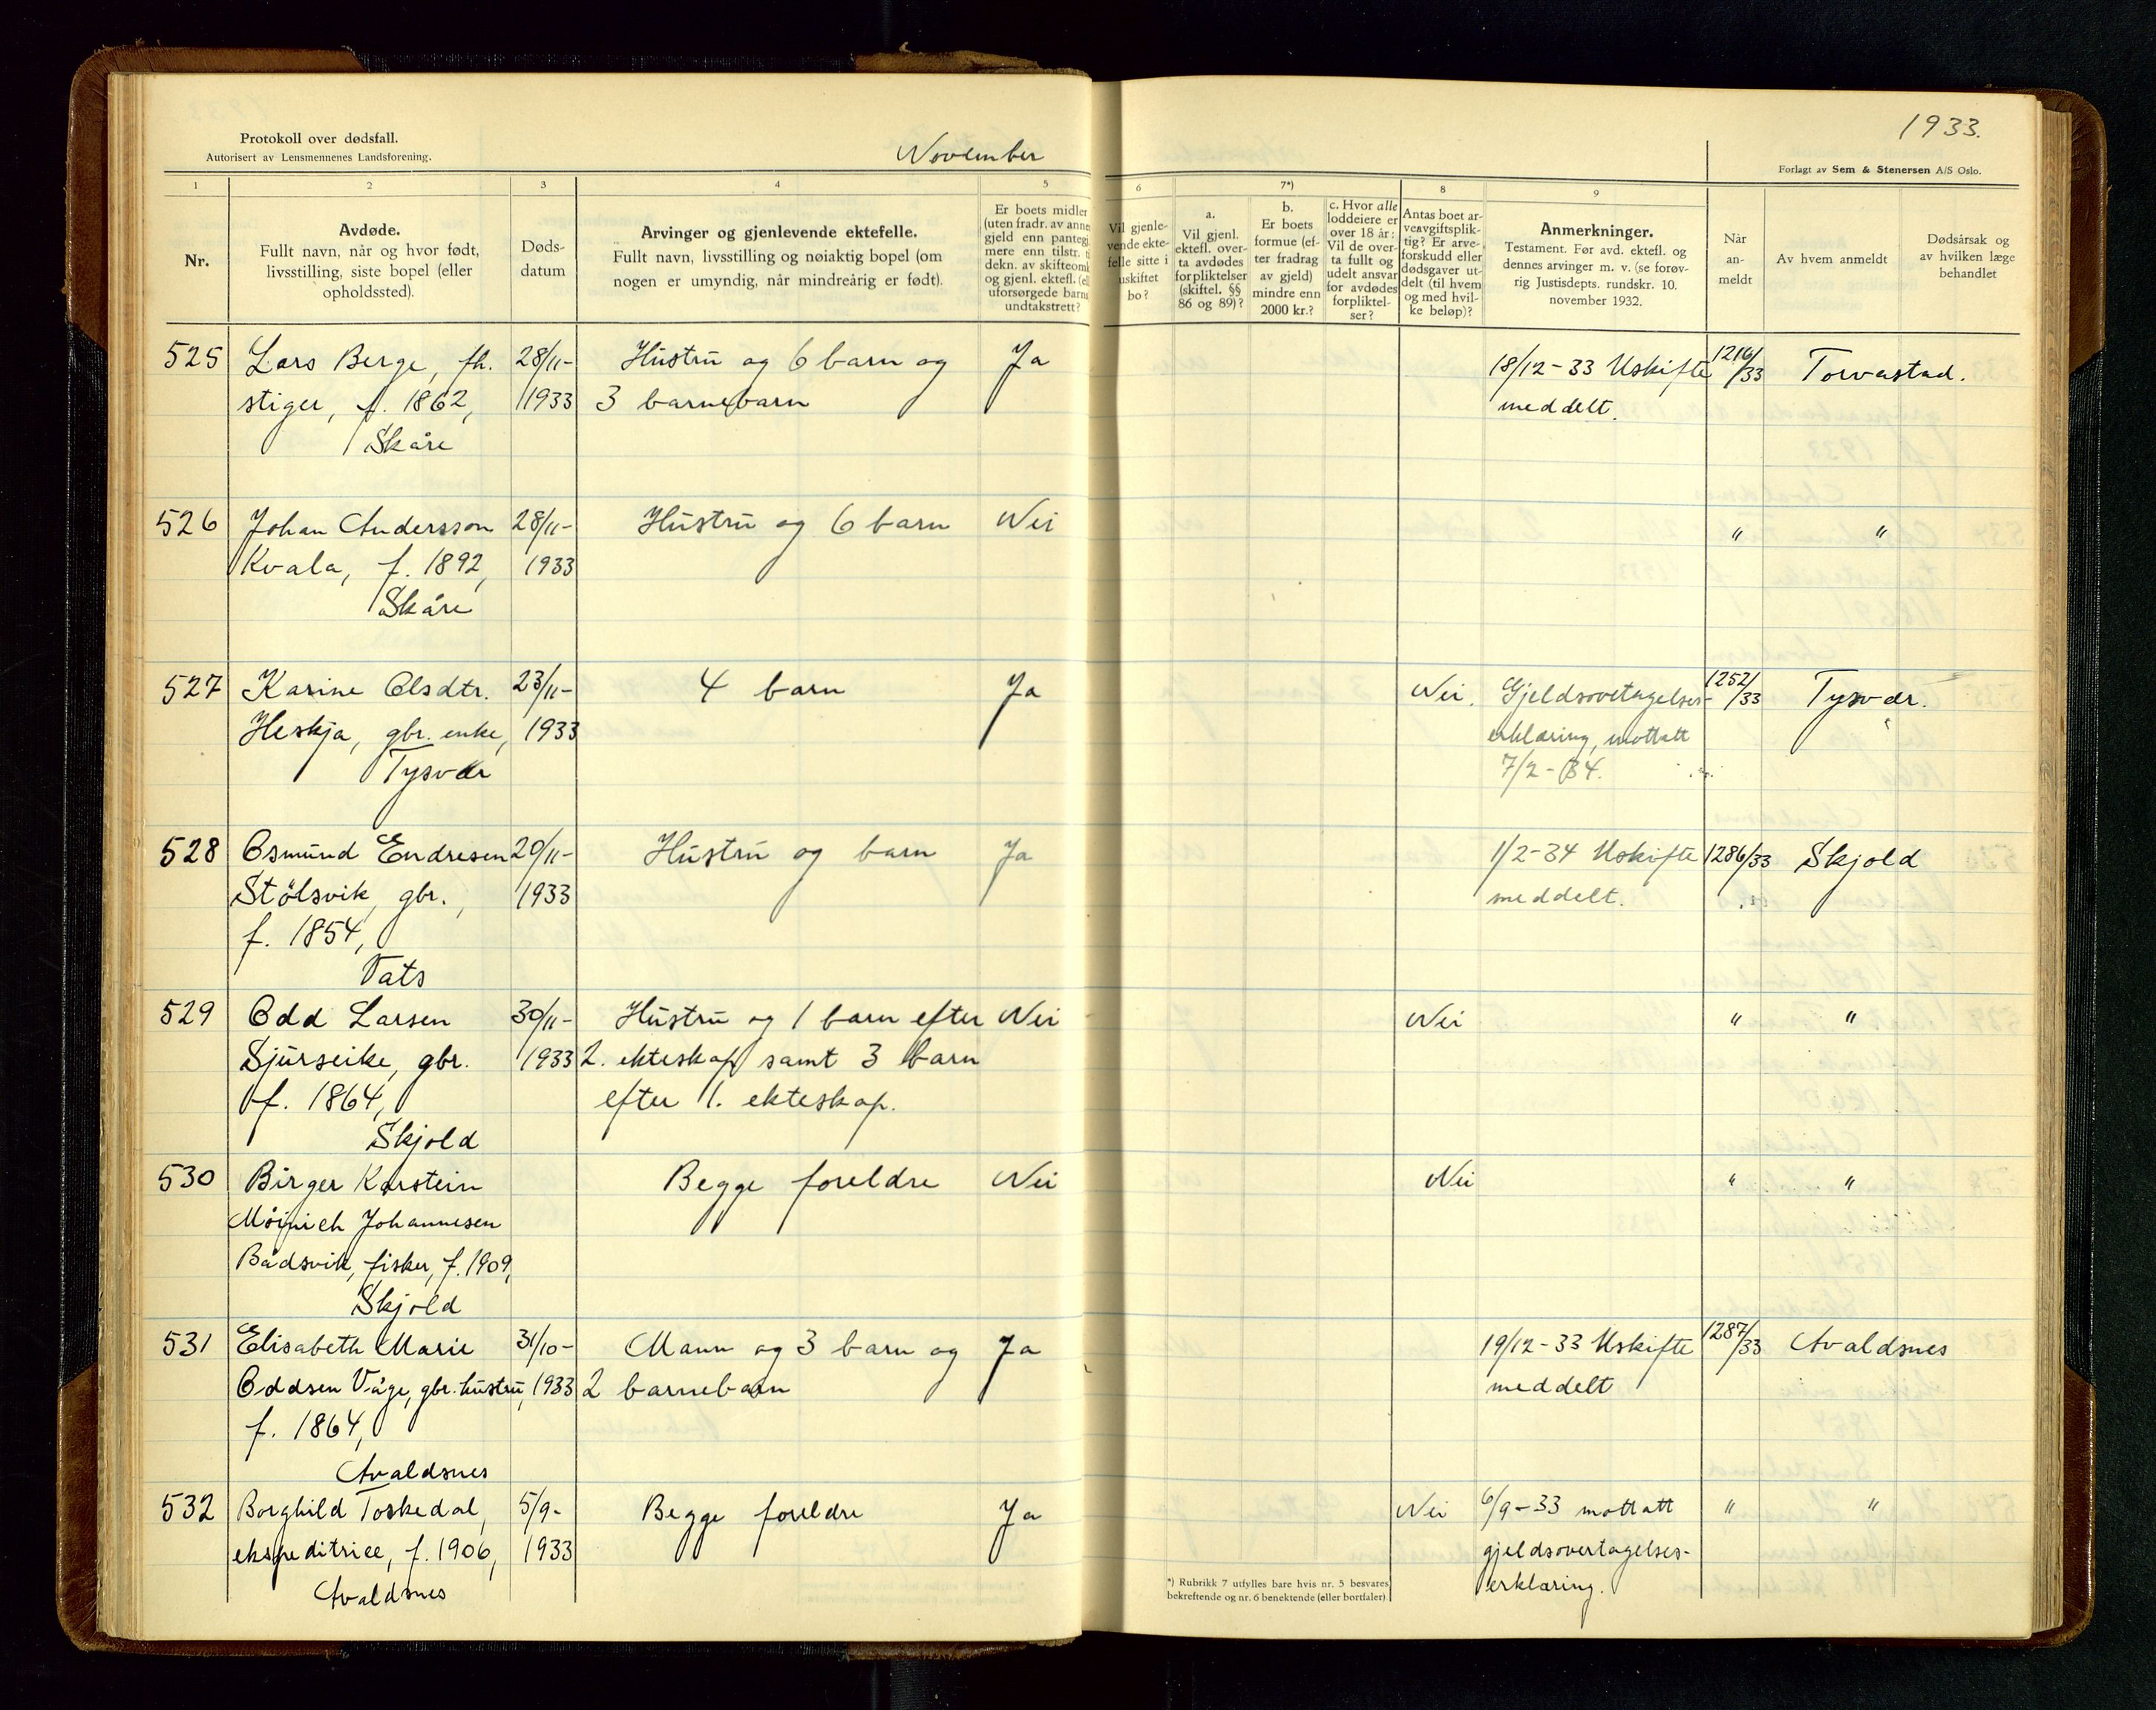 Protokoll over dødsfall.
Autorisert av Lensmennenes Landsforening.
November
1933.
Forlagt av Sem & Stenersen A/S Oslo.
1 2 3 4 5 6 7*) 8 9
Nr.
Avdøde.
Fullt navn, når og hvor født,
livsstilling, siste bopel (eller
opholdssted).
Døds-
datum
Arvinger og gjenlevende ektefelle.
Fullt navn, livsstilling og nøiaktig bopel (om
nogen er umyndig, når mindreårig er født).
Er boets midler
(uten fradr. av anne
gjeld enn pantegj
mere enn tilstr. t
dekn. av skifteomk
og gjenl. ektefl. (ell
uforsørgede barns
undtakstrett?
Vil gjenle-
vende ekte-
felle sitte i
uskiftet
bo?
a.
Vil gjenl.
ektefl. over-
ta avdødes
forpliktelser
(skiftel. §§
86 og 89)?
b.
Er boets
formue (ef-
ter fradrag
av gjeld)
mindre enn
2000 kr.?
c. Hvor alle
loddeiere er
over 18 år:
Vil de over-
ta fullt og
udelt ansvar
for avdødes
forpliktel-
ser?
Antas boet ar-
veavgiftsplik-
tig? Er arve-
forskudd eller
dødsgaver ut-
delt (til hvem
og med hvil-
ke beløp)?
Anmerkninger.
Testament. Før avd. ektefl. og
dennes arvinger m. v. (se forøv-
rig Justisdepts. rundskr. 10.
november 1932.
Når
an-
meldt
Av hvem anmeldt
Dødsårsak og
av hvilken læge
behandlet
525 Lars Berge, fh. 28/11- Hustru og 6 barn og Ja 18/12-33 Uskifte 1216/33 Torvastad.
stiger, f. 1862, 1933 3 barnebarn meddelt.
Skåre
526 Johan Andersson 28/11- Hustru og 6 barn Nei " "
Kvala, f. 1892, 1933
Skåre
527 Karine Olsdtr. 23/11- 4 barn Ja Nei. Gjeldsovetagelses- 1252/33 Tysvær.
Heskja, gbr. enke, 1933 erklæring, mottatt
Tysvær 7/2-34.
528 Osmund Endresen 20/11- Hustru og barn Ja 1/2-34 Uskifte 1286/33 Skjold
Stølsvik, gbr., 1933 meddelt.
f. 1854,
Vats
529 Odd Larsen 30/11- Hustru og 1 barn efter Nei Nei " "
Sjurseike, gbr. 1933 2. ekteskap samt 3 barn
f. 1864, efter 1. ekteskap.
Skjold
530 Birger Karstein Begge foreldre Nei Nei " "
Johannesen
Bådsvik, fisker, f. 1909,
Skjold
531 Elisabeth Marie 31/10- Mann og 3 barn og Ja 19/12-33 Uskifte 1287/33 Avaldsnes
Oddsen Våge, gbr. hustru, 1933 2 barnebarn meddelt
f. 1864,
Avaldsnes
532 Borghild Toskedal, 5/9- Begge foreldre Ja Nei 6/9-33 mottatt " "
ekspeditrice, f. 1906, 1933 gjeldsovertagelses-
Avaldsnes erklæring.
*) Rubrikk 7 utfylles bare hvis nr. 5 besvares
bekreftende og nr. 6 benektende (eller bortfaler).